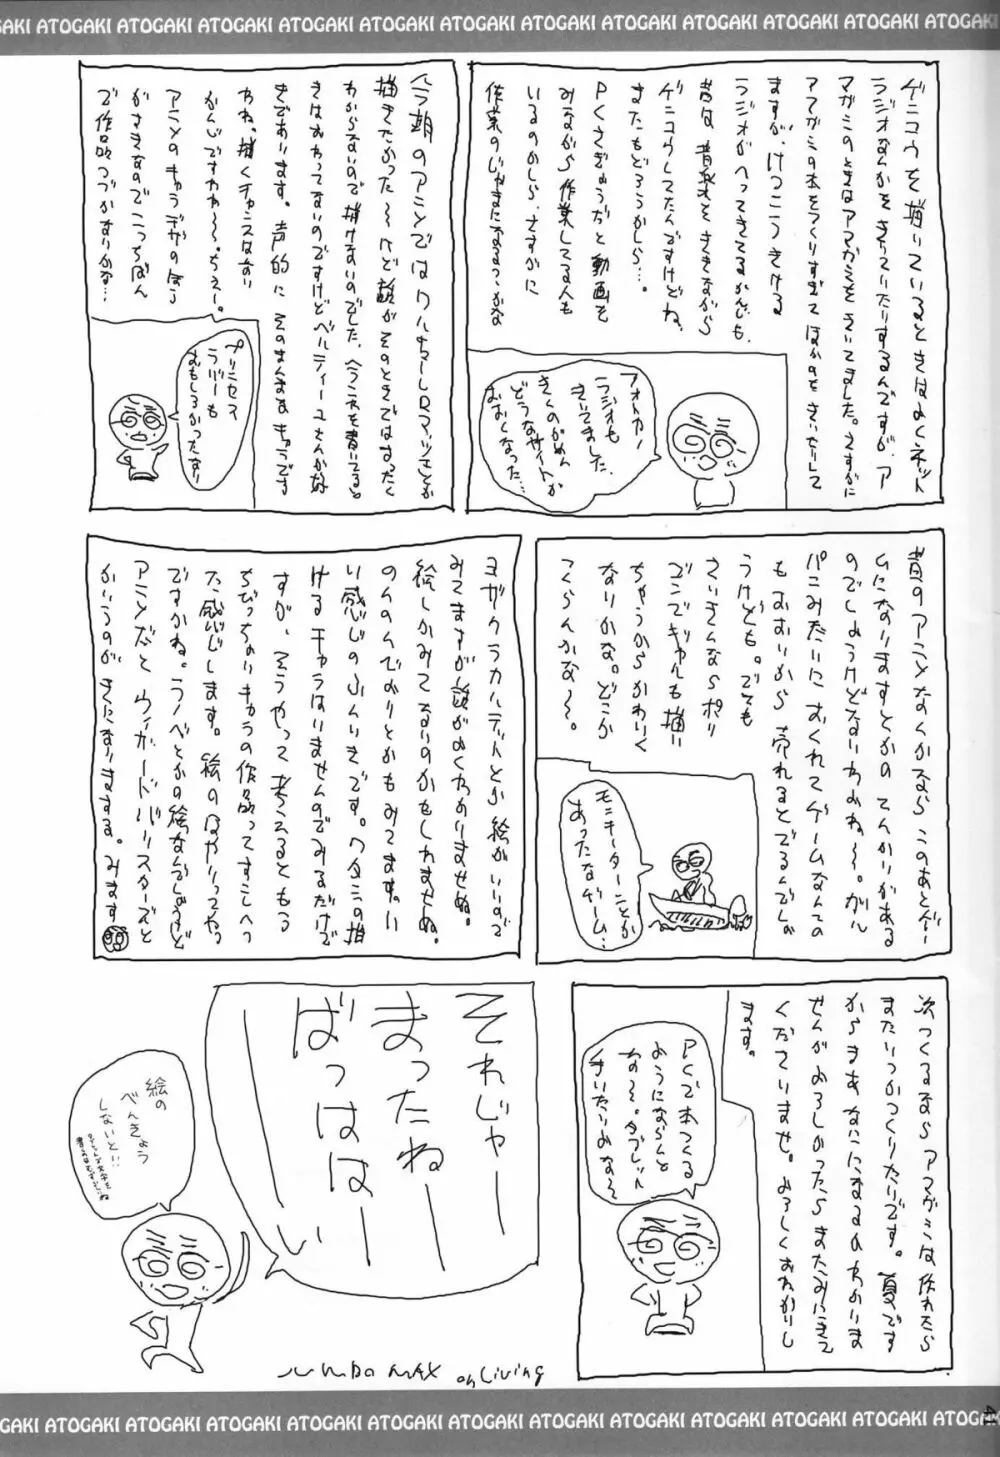 ATOGAKI ATOGAKI ATOGAKI ATOGAKI ATOGAKI ATOGAKI ATOGAKI ATOGAKI
ゲンコウを描いているときはよくネット
ラジオなんかをきいていたりするんですが、ア
マガミのときはアマガミをきいてました。さすがに
アマガミの本をつくりすぎて ほかのをきいたりして
ますが、けっこうきける
ラジオがへってきてるかんじも、
昔は音楽をききながら
ゲンコウしてたんですけどね、
またもどろうかしら…。
PCさぎょうだと動画を
みながら作業してる人も
いるのかしら、さすがに
作業のじゃまになるっつかな
フォトカノ
ラジオも
きいてました。
きくのがめん
どうなサイトが
おおくなった…
今期のアニメでは
描きたかった〜けど話がそのときではまったく
わからないので描けないのでした、
きはおわってないのですけどベルティーユさんが好
きであります。声的に そのまんまなキャラです
わね。描くチャンスはない
かんじですわわ〜。ちぇー。
アニメのキャラデザのほう
がすきなのでこっちばん
で作品つづかないかな…
プリンセス
ラバーも
おもしろかったなぁ
昔のアニメなんかなら このあとゲー
ムになりますとかの てんかいがある
のでしょうけどないわよね〜。ガル
パンみたいに おくれてゲームなんての
もおおいから 売れるとでるんでしょ
うけども。でても
さいきんならポリ
ゴンでギャルも描い
ちゃうからかわいく
なりかな。どこか
つくらんかな〜。
モニキーターことか
あったなゲーム…
ヨザクラカルテットとか 絵がいいので
みてますが話がよくわかりませぬ。
絵しかみてないのかもしれませぬ。
のんのんびよりとかもみてます。い
い感じのふんいきです。ワタシの描
けるキャラはいませんのでみるだけで
すが、そうやって考えるともる
ちびっちゃいキャラの作品ってすこしへっ
た感じします。絵のはやりってやつ
ですかね。ラノベとかの絵なんでしょうけど
アニメだと ウィザードバリスターズと
かいうのが きになりまする。みます
次つくるなら アマガミは作れたら
またいつかつくりたいです。夏です
からまあなにになるのかわかりま
せんがよろしかったら またみにきて
くださいませ。よろしくおねがいし
ます。
PCで本つくる
ようにならんと
な〜。タブレット
手いたいよな〜
それじゃー
まったねー
ばっはは
ーい
絵の
べんきょう
しないと!!
JUMBO MAX on Living
ATOGAKI ATOGAKI ATOGAKI ATOGAKI ATOGAKI ATOGAKI ATOGAKI ATOGAKI
41